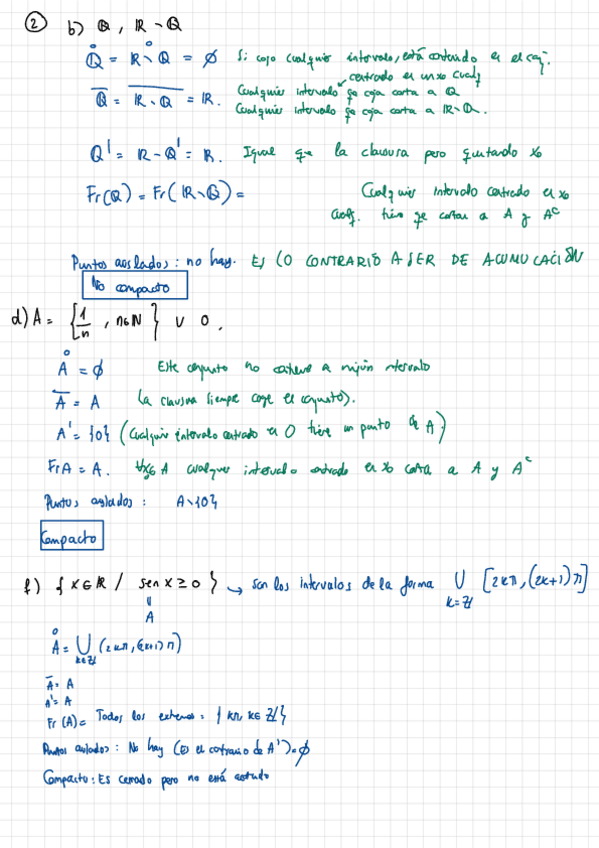 2 b) ℚ, ℝ∖ℚ
ℚ̊ = ℝ∖ℚ̊ = ∅ Si cojo cualquier intervalo, está contenido en el conj.
centrado en un x0 cualq
ℚ̅ = ℝ∖ℚ̅ = ℝ. Cualquier intervalo que coja corta a ℚ
Cualquier intervalo que coja corta a ℝ∖ℚ.
ℚ' = ℝ-ℚ' = ℝ. Igual que la clausura pero quitando x0
Fr(ℚ) = Fr(ℝ∖ℚ) = Cualquier intervalo centrado en x0
cualq. tiene que cortar a A y Aᶜ
Puntos aislados: no hay. ES LO CONTRARIO A SER DE ACUMULACIÓN
No compacto
d) A = {1/n, n∈ℕ} ∪ 0.
Å = ∅ Este conjunto no contiene a ningún intervalo
A̅ = A (La clausura siempre coge el conjunto).
A' = {0} (Cualquier intervalo centrado en 0 tiene un punto de A)
Fr A = A. ∀x0∈A cualquier intervalo centrado en x0 corta a A y Aᶜ
Puntos aislados: A∖{0}
Compacto
f) {x∈ℝ / sen x ≥ 0} → Son los intervalos de la forma ⋃ [2kπ, (2k+1)π]
k=ℤ
A
Å = ⋃ (2kπ, (2k+1)π)
k∈ℤ
A̅ = A
A' = A
Fr (A) = Todos los extremos = {kπ, k∈ℤ}
Puntos aislados: No hay (Es el contrario de A') = ∅
Compacto: Es cerrado pero no está acotado